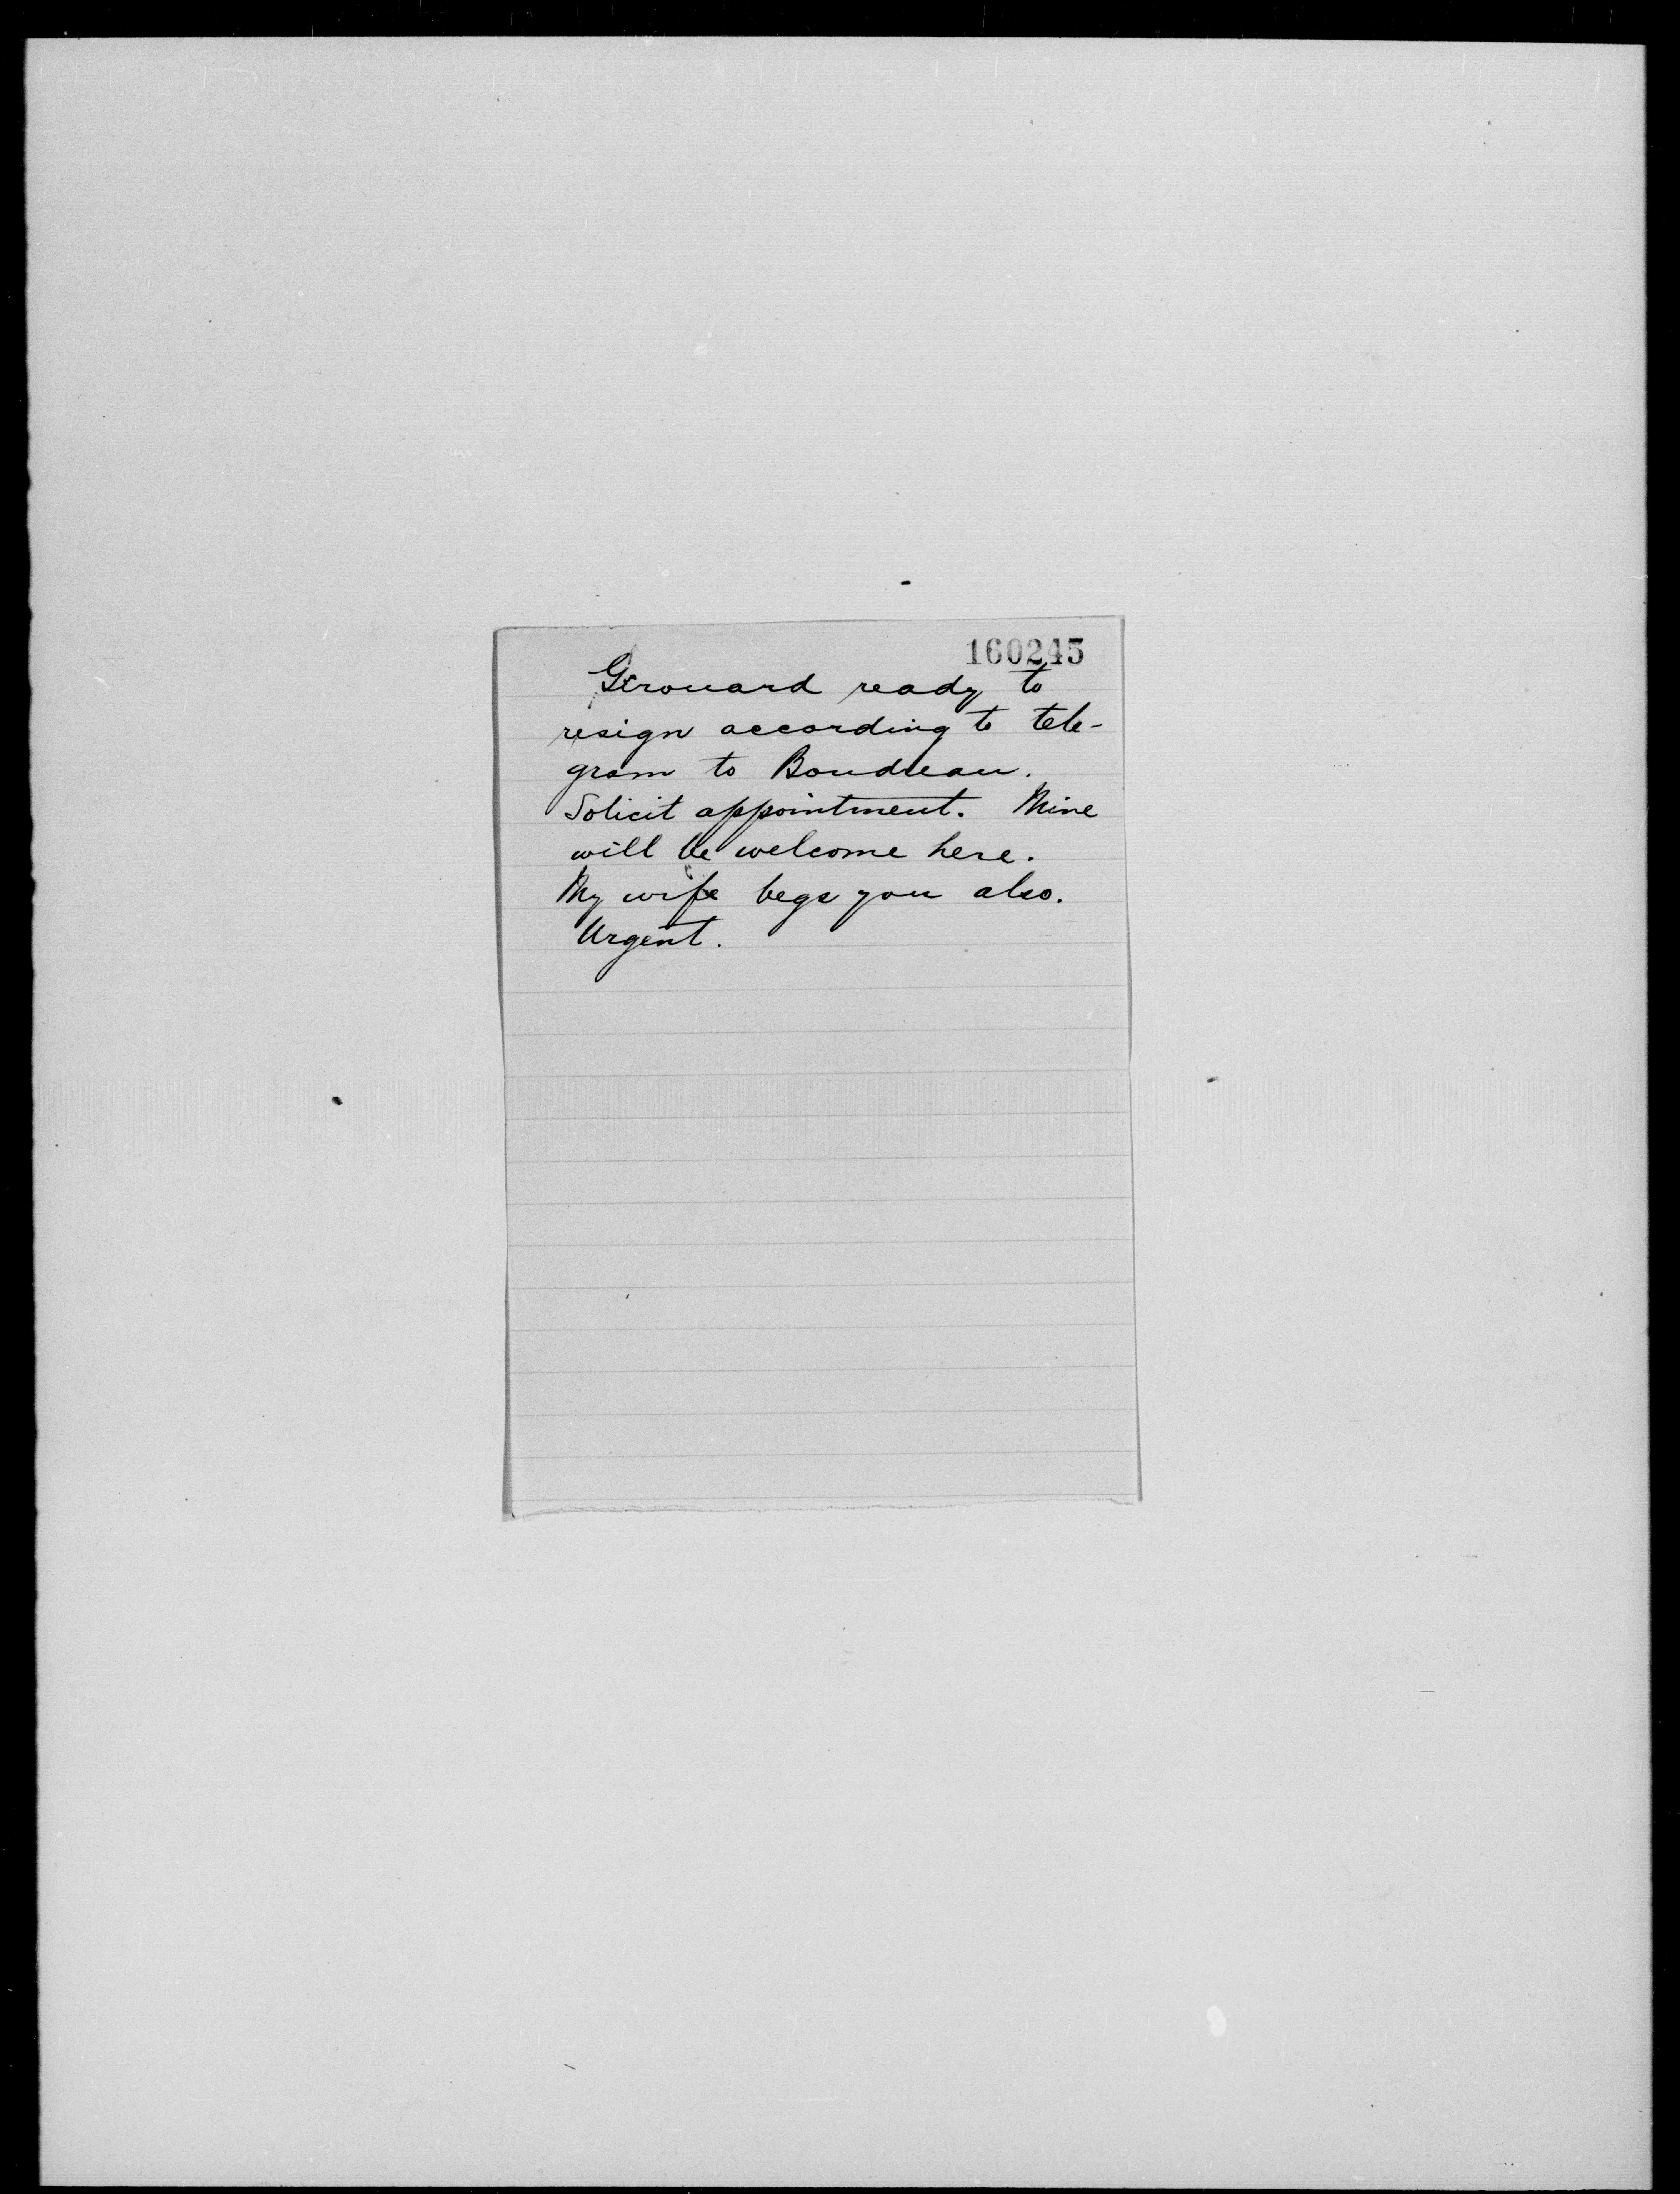 160245
Girouard ready to
resign according to tele-
gram to Boudreau.
Solicit appointment. Mine
will be welcome here.
My wife begs you also.
Urgent.